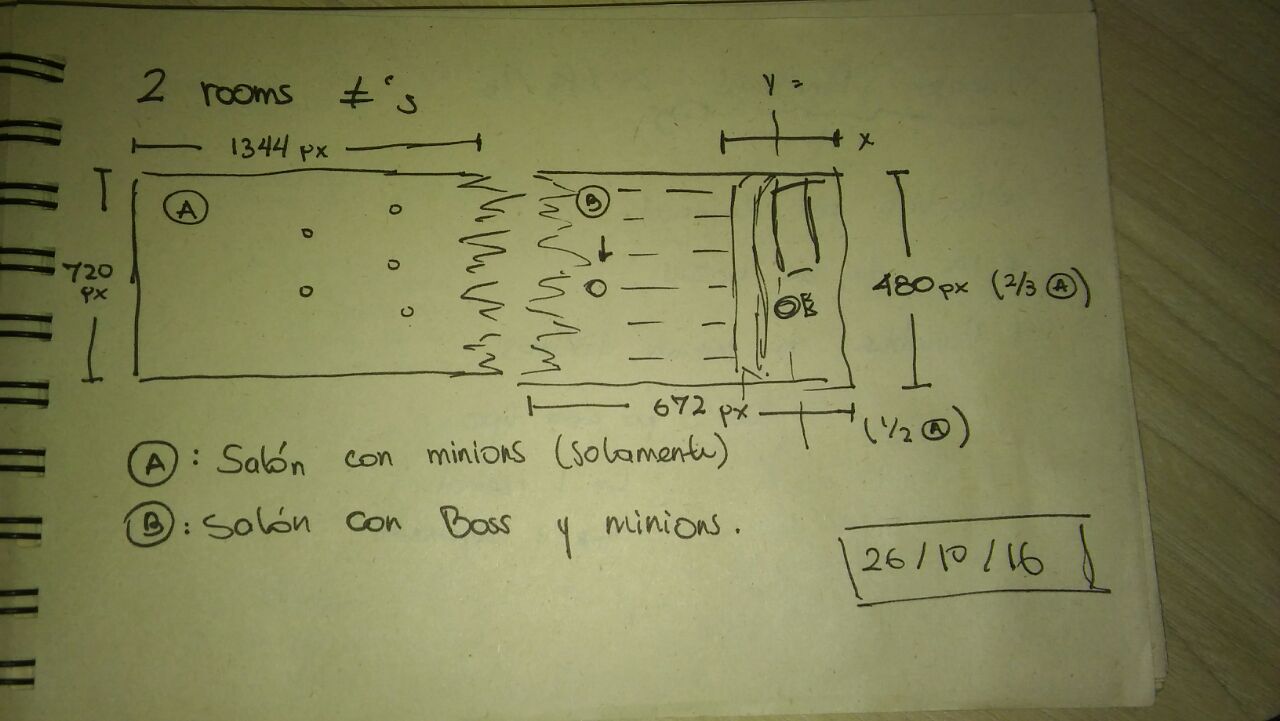 2 rooms ≠'s
1344 px
y =
x
A
B
720
px
480 px (2/3 A)
B
672 px
(1/2 A)
A: Salón con minions (solamente)
B: Salón con Boss y minions.
26/10/16